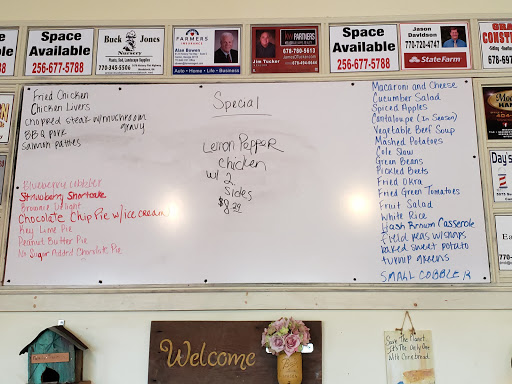 Space
Available
256-677-5788
Buck Jones
Nursery
Plants, Sod, Landscape Supplies
770-345-5506
FARMERS
INSURANCE
Alan Bowen
Auto • Home • Life • Business
KW PARTNERS
678-780-5613
Jim Tucker
Space
Available
256-677-5788
Jason
Davidson
770-720-4747
StateFarm
Fried Chicken
Chicken Livers
Chopped steak w/mushroom
gravy
BBQ pork
Salmon patties
Blueberry cobbler
Strawberry Shortcake
Brownie Delight
Chocolate Chip Pie w/ice cream
Key Lime Pie
Peanut Butter Pie
No Sugar Added Chocolate Pie
Special
Lemon Pepper
Chicken
w/ 2
Sides
Macaroni and Cheese
Cucumber Salad
Spiced Apples
Cantaloupe (In Season)
Vegetable Beef Soup
Mashed Potatoes
Cole Slaw
Green Beans
Pickled Beets
Fried Okra
Fried Green Tomatoes
Fruit Salad
White Rice
Hash Brown Casserole
field peas w/snaps
baked sweet potato
turnip greens
SMALL COBBLER
Day's
Welcome
Save The Planet
It's The Only One
With Cornbread